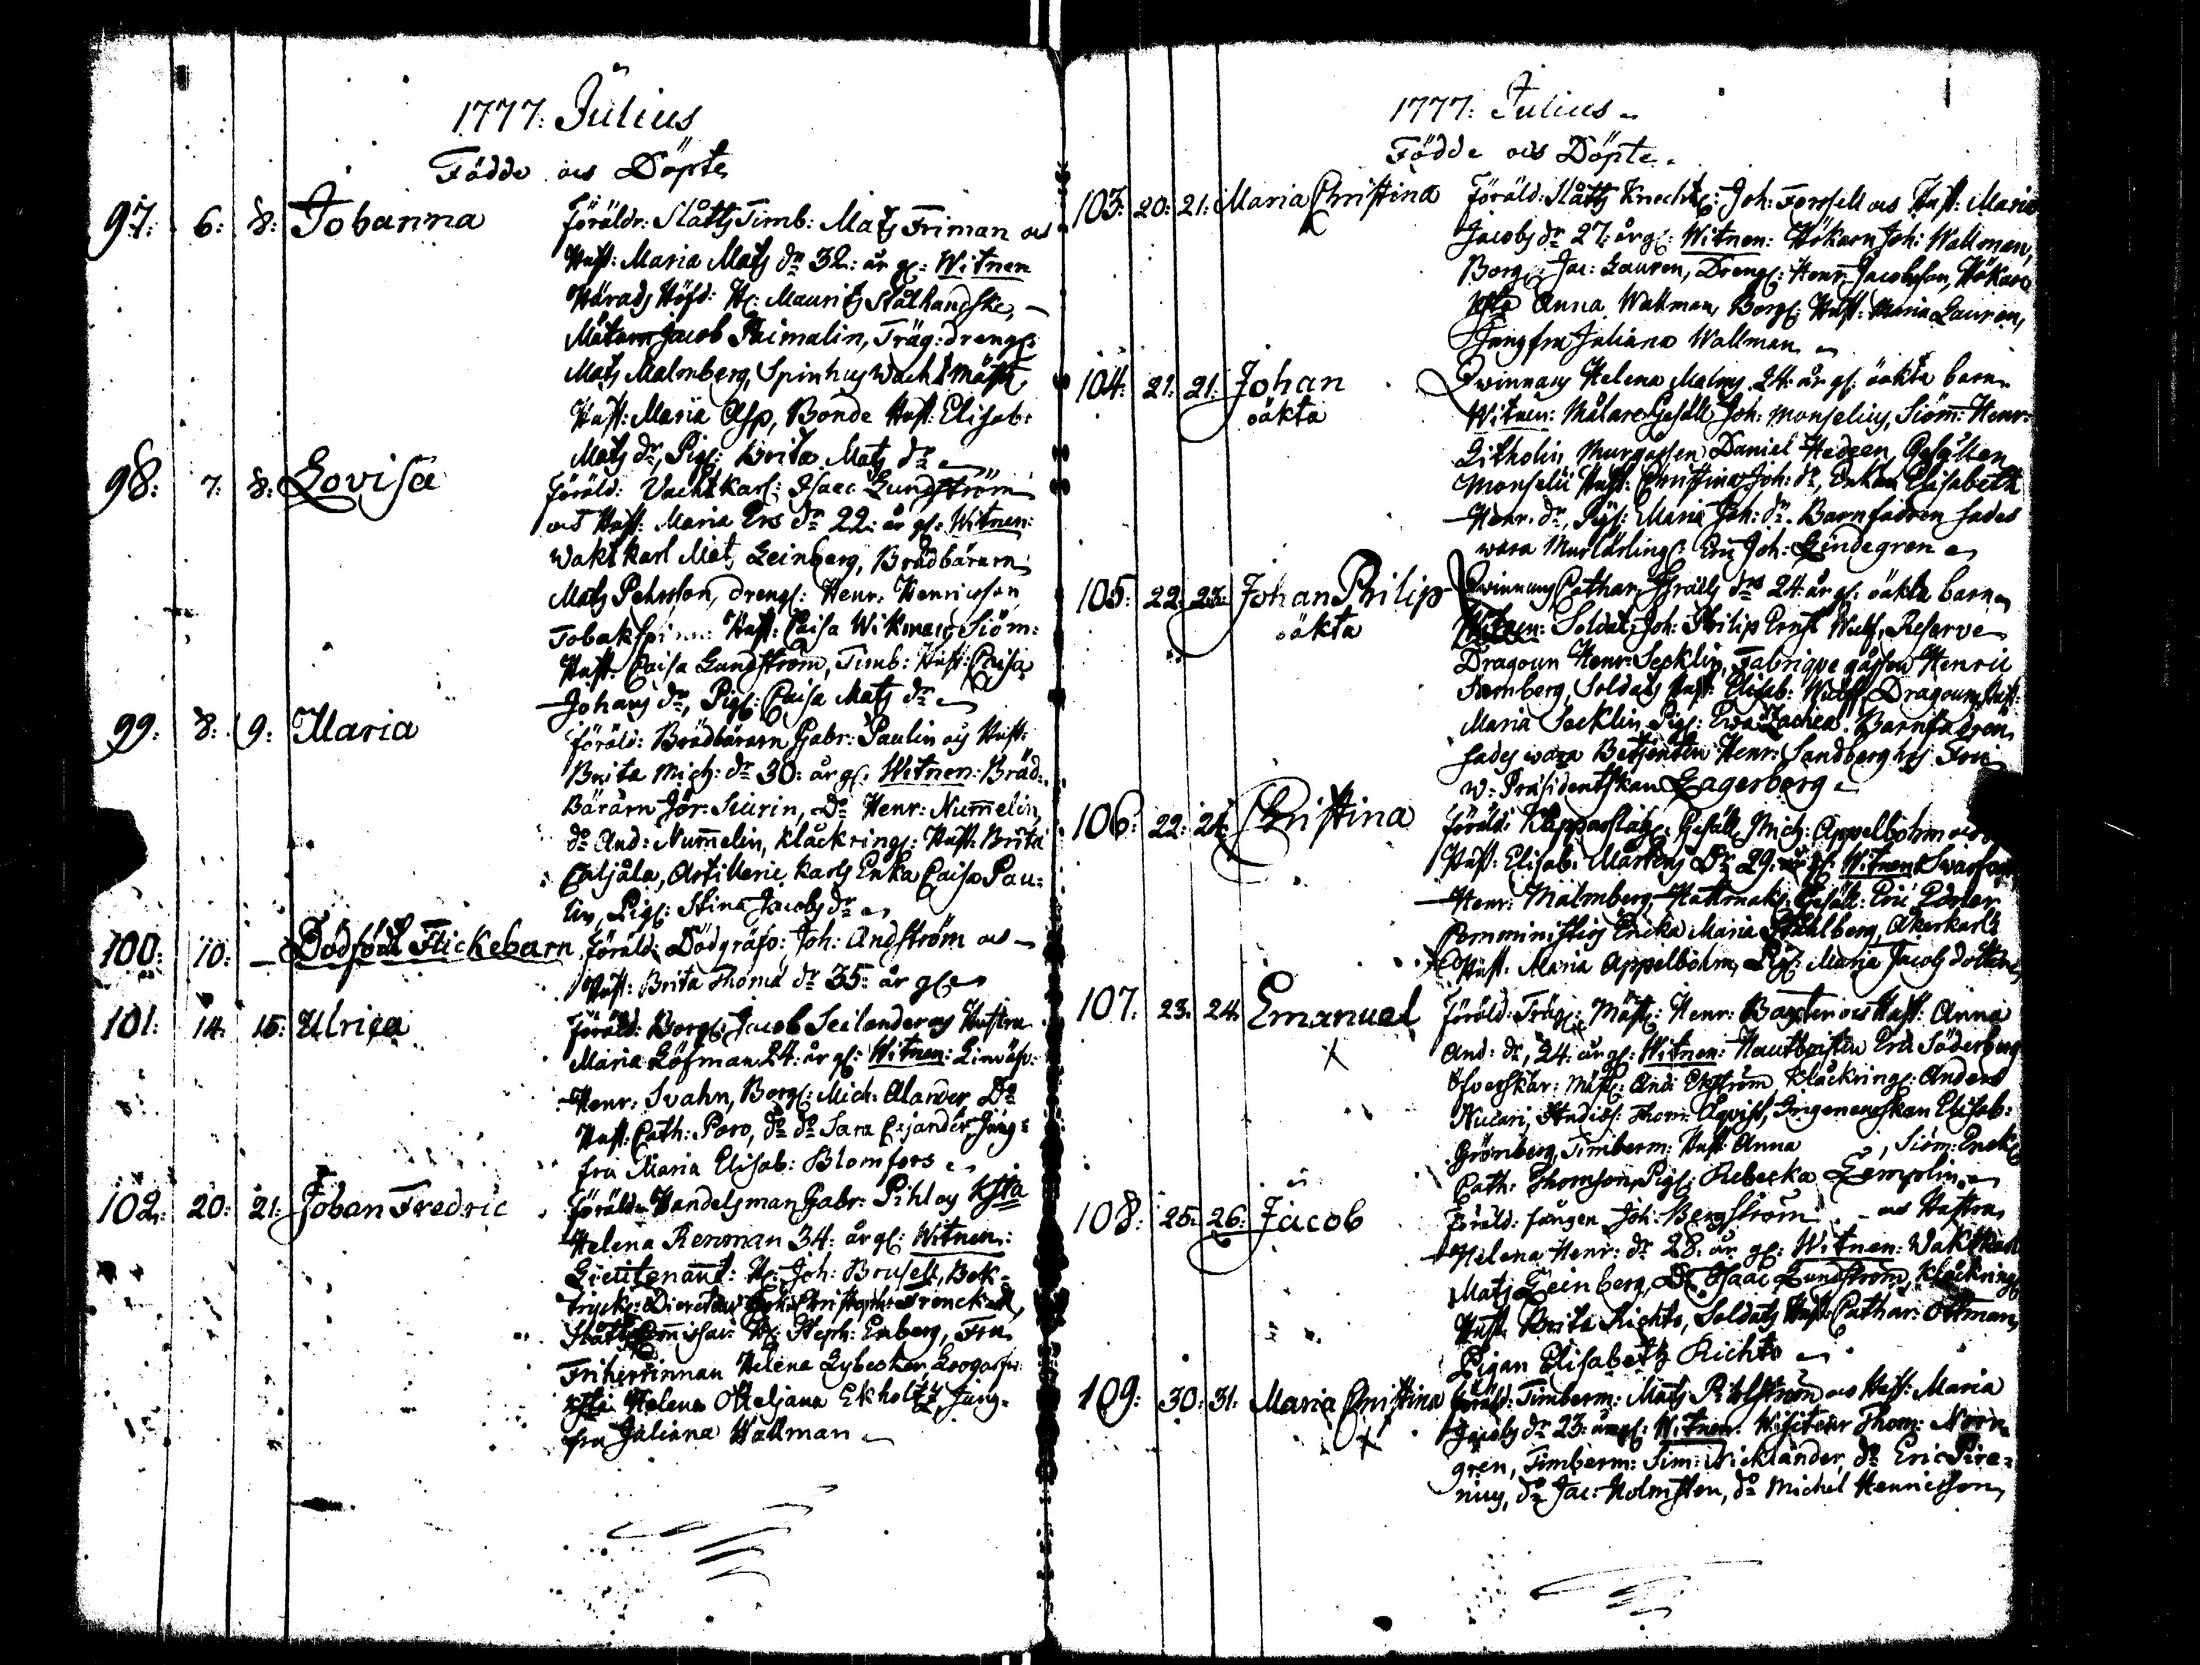 1777: Julius
Födde och Döpte
97: 6: 8: Johanna Föräldr: Slåtts Timb: Mats Friman och
Hust: Maria Mats dr 32: år gl: Witnen
Härads Höfd: H: Maurits Stålhandske,
Mätarn Jacob Heimalin, Träg: drengs:
Mats Malmberg, Spinhus Wacht mäst
Hust: Maria Asp, Bonde Hust: Elisab:
Mats dr, Pig: Brita Mats dr
98: 7: 8: Lovisa Föräld: Vacht karl: Isaac Lundström
och Hust: Maria Ers dr 22: år gl: Witnen:
Wakt karl Mat: Leinberg, Brädbärarn
Mats Pehrsson, drengs: Henr: Henricsson
Tobakspinn: Hust: Caisa Wikman, Siöm:
Hust: Caisa Lundström, Timb: Hust: Caisa
Johans dr, Pig: Caisa Mats dr
99: 8: 9: Maria Föräld: Brädbärarn Gabr: Paulin och Hust:
Brita Mich: dr 30: år gl: Witnen: Bräd:
Bärarn Jör: Siurin, Do Henr: Nummelin,
do And: Nummelin, Klåckring: Hust: Brita
Caljåla, Artillerie karls Enka Caisa Pau:
lin, Pig: Stina Jacobs dr
100: 10: — Dödfödt Flickebarn Föräld: Dödgräfv: Joh: Andström och
Hust: Brita Thomæ dr 35: år gl
101: 14: 15: Ulrica Föräld: Borg: Jacob Seilander och Hustru
Maria Löfman 24: år gl: Witnen: Linwäfv:
Henr: Svahn, Borg: Mich: Alander Do
Hust: Cath: Poro, do do Sara Cajander Jung:
fru Maria Elisab: Blomfors
102: 20: 21: Johan Fredric Föräld: Handelsman Gabr: Pihl och Kjsta
Helena Renman 34: år gl: Witnen:
Lieutenant: H: Joh: Brusell, Bok:
tryck: Directeur Joh: Christopher Frenckell,
Slåtts Commissar: H: Steph: Enberg, Fru
Friherrinnan Helena Lybecker,
Kjsta Helena Otteljana Ekholtz, Jung:
fru Juliana Wallman
1777: Julius
Födde och Döpte
103: 20: 21: Maria Christina Föräld: Slåtts Knecht: Joh: Forssell och Hust: Maria
Jacobs dr 27: år gl: Witnen: Hökarn Joh: Wallman,
Borg: Jac: Lauren, Drengs: Henr: Jacobsson, Hökare
Kjsta Anna Wallman, Borg: Hust: Maria Lauren,
Jungfru Juliana Wallman
104: 21: 21: Johan Qwinnans Helena Malms 24: år gl: oäkta barn
oäkta Witnen: Målare Gesäll Joh: Monselius, Siöm: Henr:
Litholin, Murgåssen Daniel Hedeen, Gesällen
Monselii Hust: Christina Joh: dr, Enkan Elisabeth
Henr: dr, Pig: Maria Joh: dr. Barnfadren sades
wara Murlärling: Eric Joh: Lindegren
105: 22: 23: Johan Philip Qwinnans Cathar: Israels drs 24: år gl: oäkta barn
oäkta Witnen: Soldat: Joh: Philip Ernst Wulf, Reserve
Dragoun Henr: Secklin, Fabriqve gåssen Henric
Soldats Hust: Elisab: Wulf, Dragouns Hust:
Maria Secklin, Pig: Ewa Zachea. Barnfadren
sades wara Betjenten Henr: Sandberg hos Fru
W: Præsidentskan Lagerborg
106: 22: 24: Christina Föräld: Kapparslag: Gesäll Mich: Appelbohm och
Hust: Elisab: Mårtens Dr 29: år gl: Witnen: Swarfvar
Henr: Malmberg, Hattmak: Gesäll: Eric
Comministers Ericka Maria Ståhlberg, Åkerkarls
Hust: Maria Appelbohm, Pig: Maria Jacobs dotter
107: 23: 24: Emanuel Föräld: Träg: Mäst: Henr: Baxter och Hust: Anna
And: dr, 24: år gl: Witnen: Hautboisten Eric Söderberg
Öfverskär: Mäst: And: Ekström, Klåckring: Anders
Nucari, Studios: Thom: Aqvist, Ingenieurskan Elisab:
Grönberg, Timberm: Hust: Anna , Siöm: Enck
Cath: Thomson, Pig: Rebecka Templin
108: 25: 26: Jacob Föräld: fången Joh: Bergström och Hustru
Helena Henr: dr 28: år gl: Witnen: Wakt karl
Mats Leinberg, Do Isaac Lundström, Klåckring
Hust: Brita Richts, Soldats Hust: Cathar: Ottman,
Pigan Elisabeth Richts
109: 30: 31: Maria Christina Föräld: Timberm: Mats Pihlström och Hust: Maria
Jacobs dr 23: år gl: Witnen: Wisiteur Thom: Norn
gren, Timberm: Sim: Nicklander, do Eric Sire:
nius, do Jac: Holmsten, do Michel Henricsson